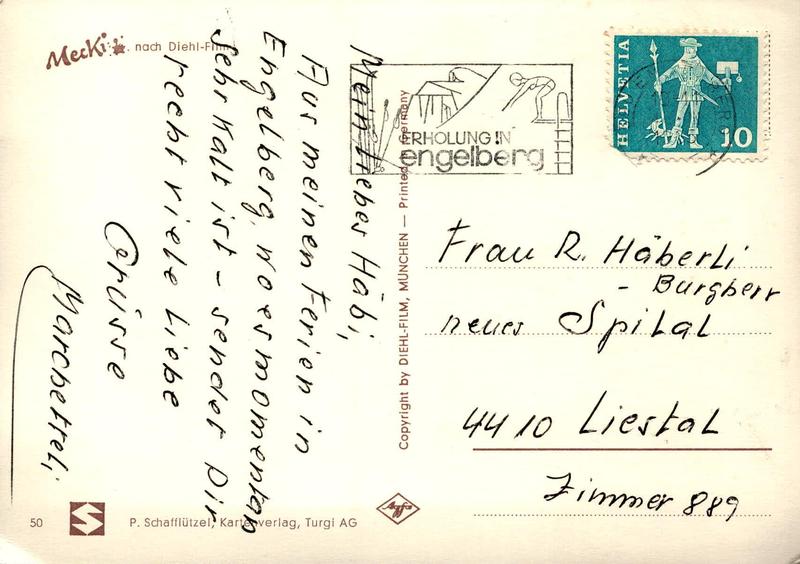 Mecki nach Diehl-Film
Mein lieber Häbi,
Aus meinen Ferien in
Engelberg, wo es momentan
sehr kalt ist - sendet Dir
recht viele liebe
Grüsse
Marchetteli
Copyright by DIEHL-FILM, MÜNCHEN — Printed in Germany
ERHOLUNG IN
engelberg
HELVETIA
10
Frau R. Häberli
- Burgherr
neues Spital
4410 Liestal
Zimmer 889
50
P. Schafflützel, Kartenverlag, Turgi AG
Agfa